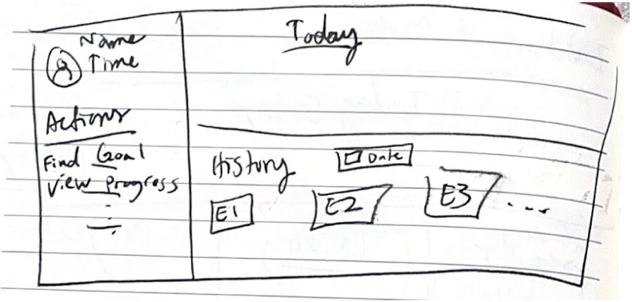 Name
Time
Actions
Find Goal
View Progress
Today
History
Date
E1 E2 E3 ...